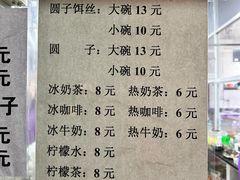 圆子饵丝：大碗 13 元
小碗 10 元
圆子：大碗 13 元
小碗 10 元
冰奶茶：8 元 热奶茶：6 元
冰咖啡：8 元 热咖啡：6 元
冰牛奶：8 元 热牛奶：6 元
柠檬水：8 元
柠檬茶：8 元
元
元
子
元
元